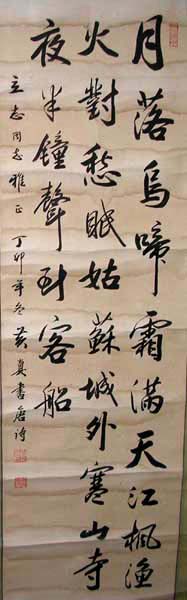 月落烏啼霜滿天江楓漁
火對愁眠姑蘇城外寒山寺
夜半鐘聲到客船
立志同志雅正 丁卯年冬 黄真書唐诗